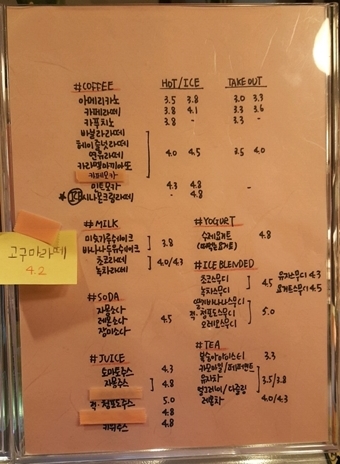 #COFFEE HOT/ICE TAKE OUT
아메리카노 3.5 3.8 3.0 3.3
카페라떼 3.8 4.1 3.3 3.6
카푸치노 3.8 - 3.3 -
바닐라라떼
헤이즐넛라떼
연유라떼 4.0 4.5 3.5 4.0
카라멜마끼아또
카페모카
민트모카 4.3 4.8 -
시나몬크림라떼 - 4.8
#MILK
미숫가루쉐이크
바나나두유쉐이크 3.8
초코라떼
녹차라떼 4.0/4.3
고구마라떼
4.2
#SODA
자몽소다
레몬소다 4.5
장미소다
#JUICE
토마토주스 4.3
자몽주스 4.8
키위주스 4.8
5.0
4.8
#YOGURT
수제요거트 4.8
#ICE BLENDED
초코스무디
녹차스무디 4.5
유자스무디 4.3
요거트스무디 4.5
오레오스무디
5.0
#TEA
복숭아아이스티 3.3
카모마일/페퍼민트
유자차 3.5/3.8
얼그레이/다즐링
레몬차 4.0/4.3